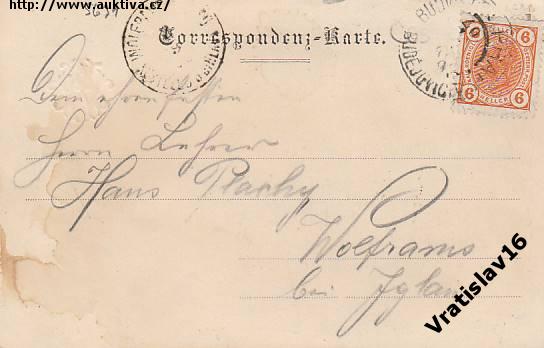 http://www.auktiva.cz/
Correspondenz-Karte.
6 6
Dem ehren festen
Herrn Lehrer
Hans Plachy
Wolframs
bei Iglau
Vratislav16